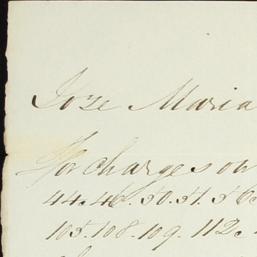 Joze Maria
For charges on
44.46.50.51.56
105.108.109.112.